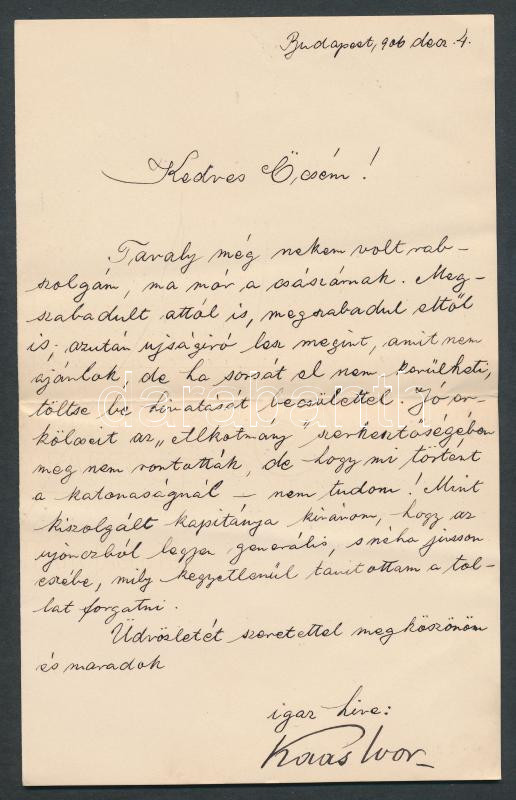 Budapest, 906 decz. 4.
Kedves Öcsém!
Tavaly még nekem volt rab-
szolgám, ma már a császárnak. Meg-
szabadult attól is, megszabadul ettől
is; azután ujságiró lesz megint, amit nem
ajánlok, de ha sorsát el nem kerülheti,
töltse be hivatását becsülettel. Jó er-
kölcseit az „Alkotmány" szerkesztőségében
meg nem rontották, de hogy mi történt
a katonaságnál – nem tudom! Mint
kiszolgált kapitánya kivánom, hogy az
ujonczból legyen generális, s néha jusson
eszébe, mily kegyetlenül tanitottam a tol-
lat forgatni.
Üdvözletét szeretettel megköszönöm
és maradok
igaz hive:
Kaas Ivor
darabanth